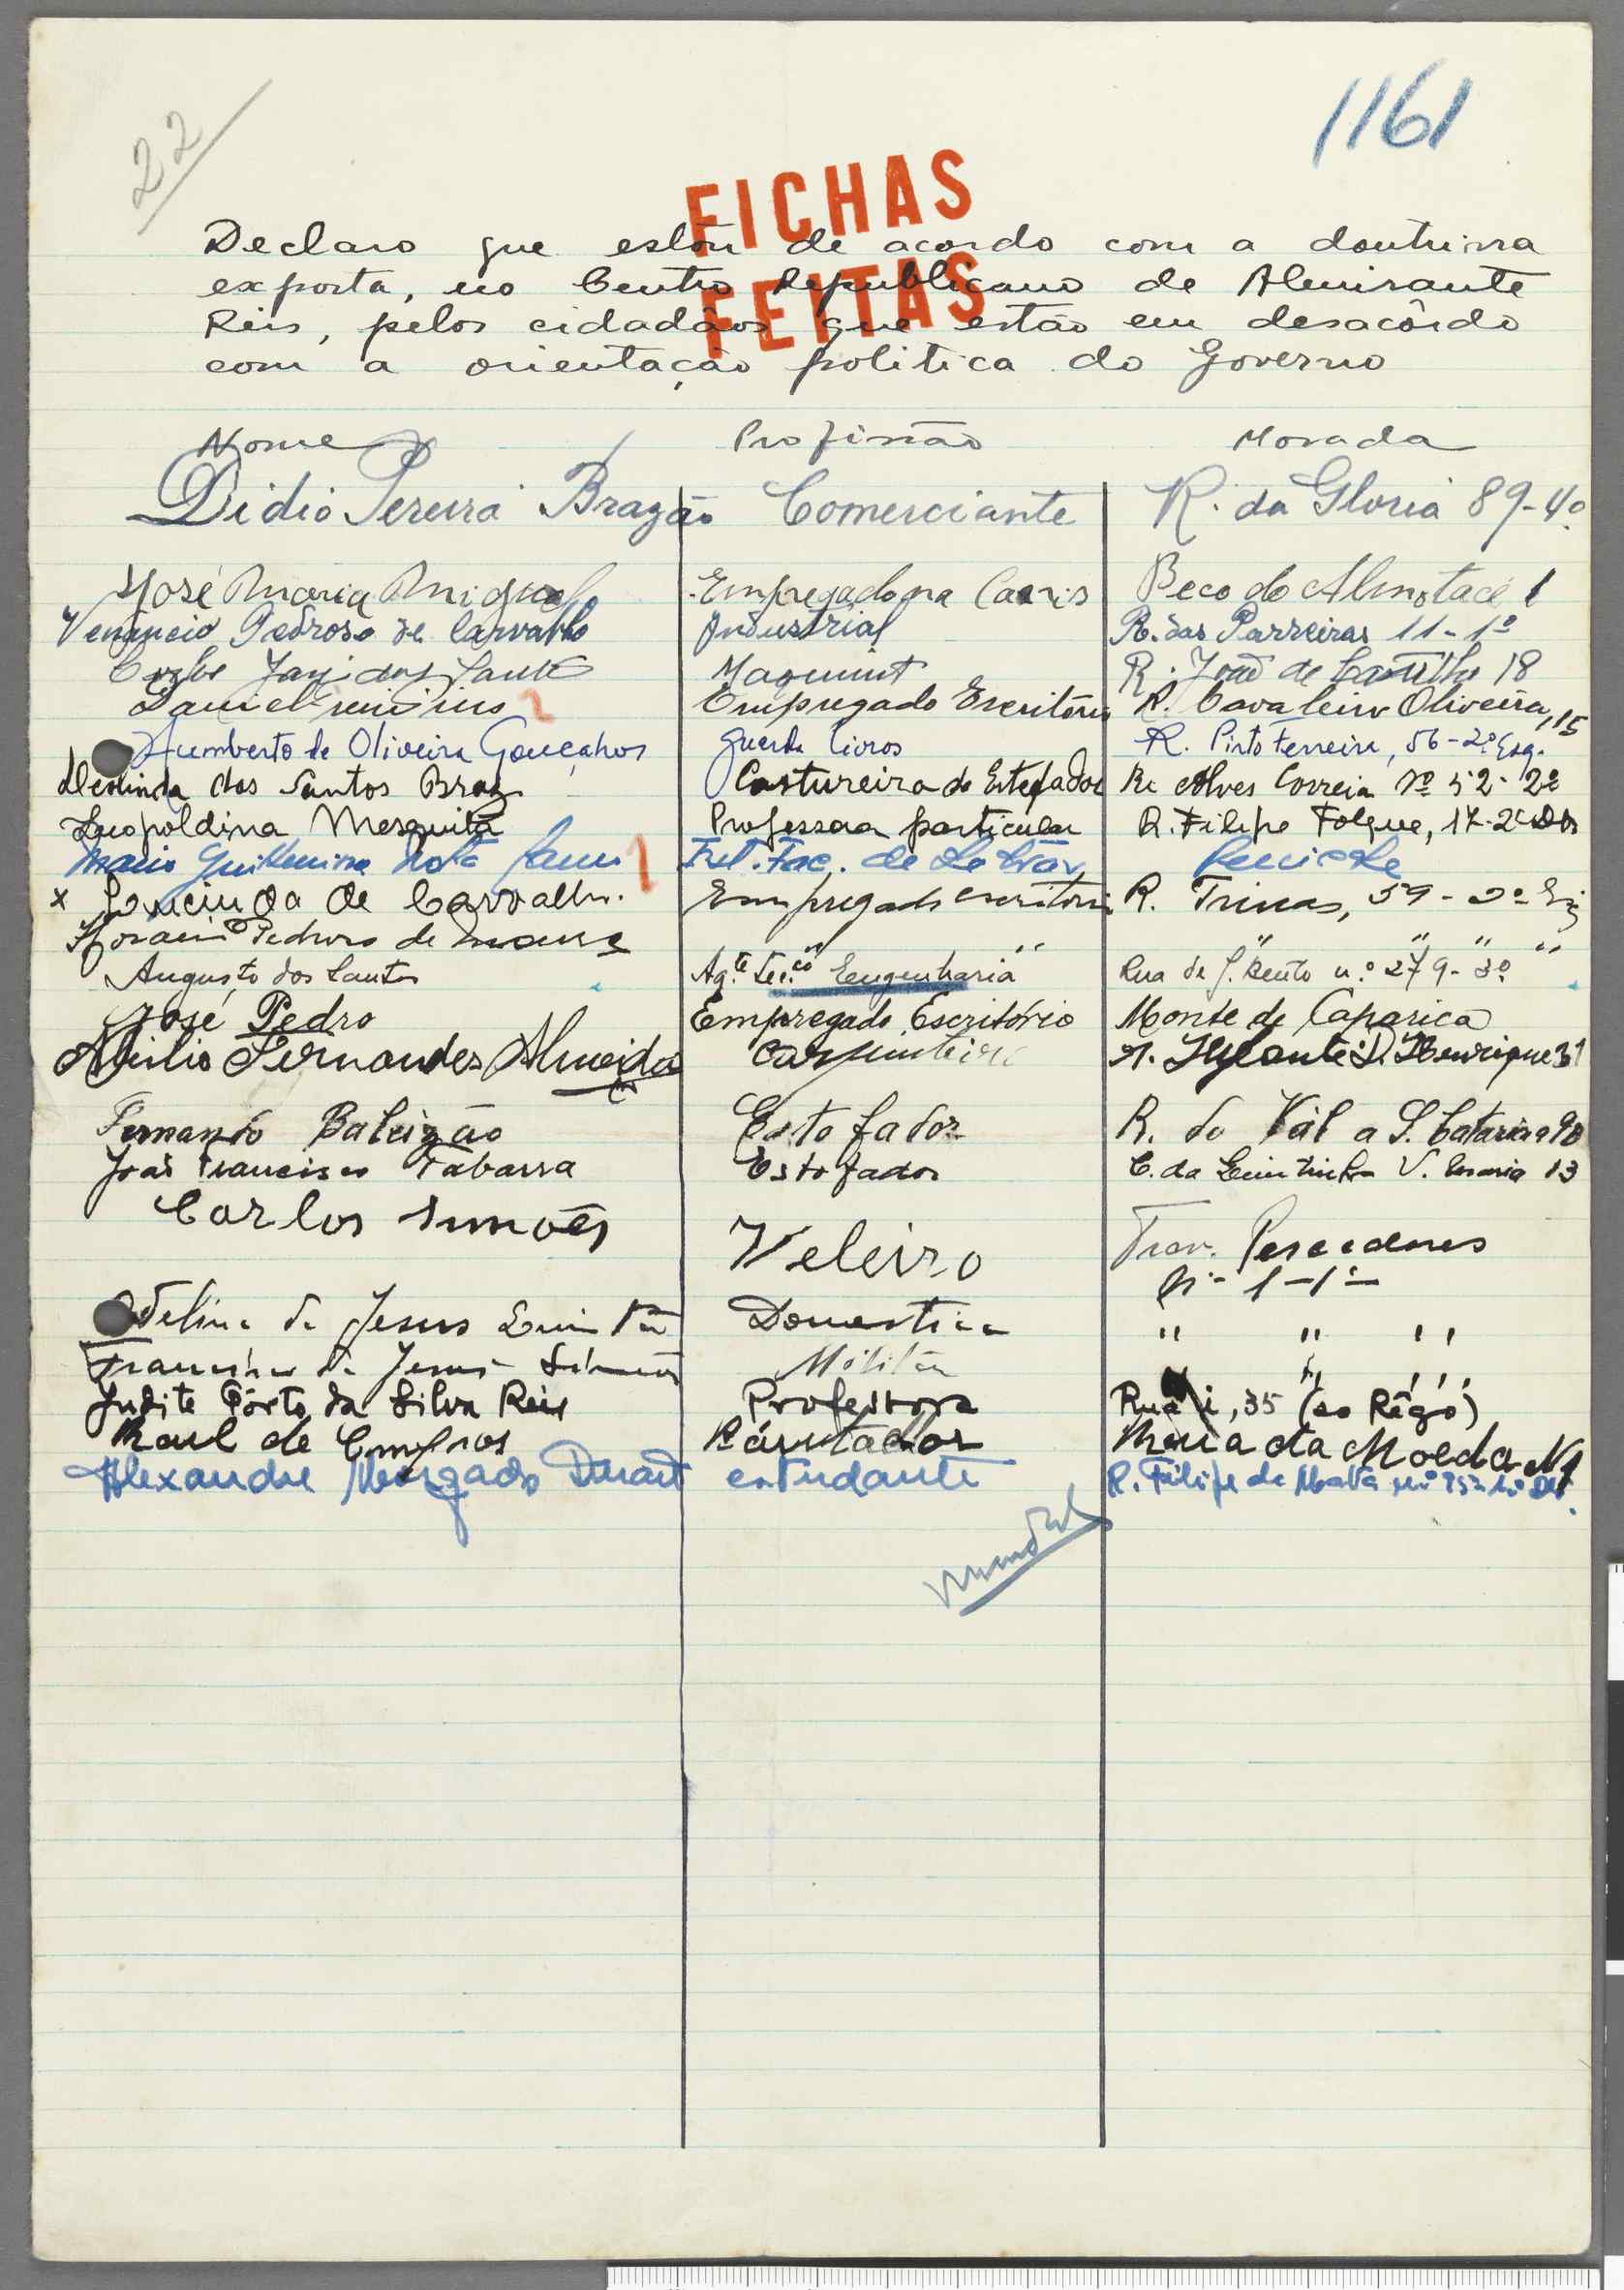 22
1161
FICHAS
FEITAS
Declaro que estou de acordo com a doutrina
exposta, no Centro Republicano de Almirante
Reis, pelos cidadãos que estão em desacôrdo
com a orientação politica do Governo
Nome Profissão Morada
Didio Pereira Bragão Comerciante R. da Gloria 89-4º
José Maria Miguel Empregado na Carris Beco do Almotacé 1
Venancio Pedroso de Carvalho Industrial R. das Parreiras 11-1º
dos R. João de Castilho 18
Daniel Empregado Escritório R. Cavaleiro Oliveira, 15
Humberto de Oliveira Gonçalves guarda livros R. Pinto Ferreira, 56-2º Esq.
Deolinda dos Santos Braz Costureira de Estofador R. Alves Correia nº 52-2º
Leopoldina Mesquita Professora particular R. Filipe Folque, 17-2º Dto
Fac. de Letras Peniche
x Lucinda de Carvalho. Empregado escritório R. Trinas, 59-2º
Pedroso de " " " "
Augusto dos Santos Ag.te Tec.co Engenharia Rua de S. Bento n.º 279-3º
José Pedro Empregado Escritório Monte de Caparica
Abilio Fernandes Almeida Carpinteiro R. Infante D. Henrique 31
Fernando Baleizão Estofador R. do Val a S. Catarina 90
João Francisco Tabarra Estofador C. da V. Maria 13
Carlos Simões Veleiro Trav. Pescadores
Nº 1-1º
Adelina de Jesus Domestica " " "
Francisco de Jesus " "
Judite Pôrto da Silva Reis Professora Rua i, 35 (ao Rêgo)
Raul de da Moeda N1
Alexandre Morgado Duarte estudante R. Filipe da Mata